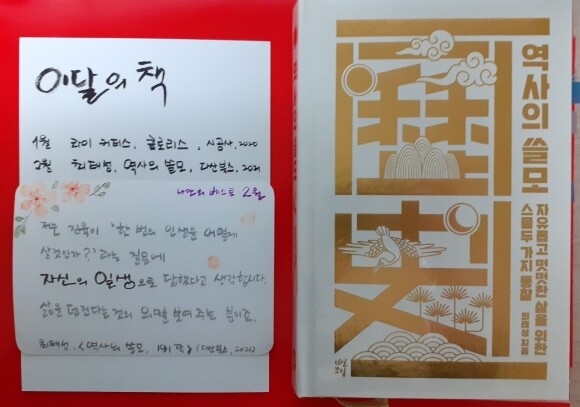 이달의 책
1월 라이 커티스, 클로리스, 시공사, 2020
2월 최태성, 역사의 쓸모, 다산북스, 2021
나만의 베스트 2월
저는 김육이 '한 번의 인생을 어떻게
살것인가?'라는 질문에
자신의 일생으로 답했다고 생각합니다.
삶을 던진다는것의 의미를 보여 주는 분이죠.
최태성, <역사의 쓸모,
(다산북스, 2021)
역사의 쓸모
자유롭고 떳떳한 삶을 위한
스물두 가지 통찰
최태성 지음
다산
초당